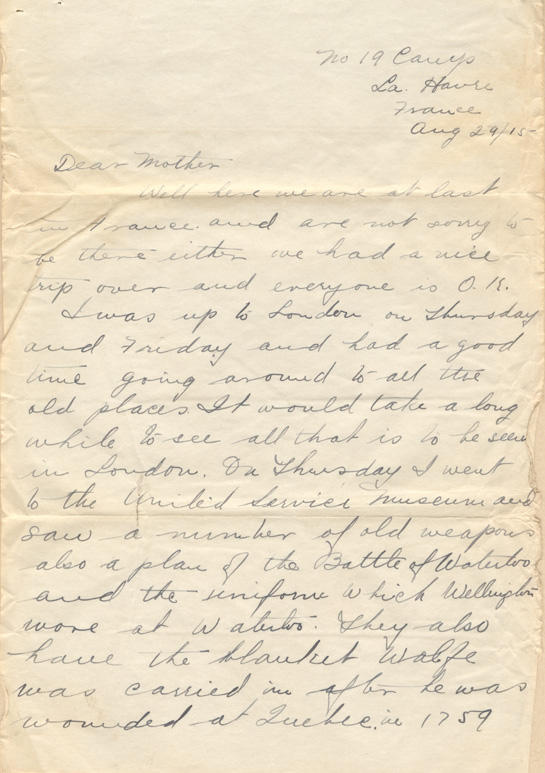 No 19 Camp
La. Havre
France
Aug 29/15
Dear Mother
Well here we are at last
in France and are not sorry to
be there either we had a nice
trip over and everyone is O.K.
I was up to London on Thursday
and Friday and had a good
time going around to all the
old places. It would take a long
while to see all that is to be seen
in London. On Thursday I went
to the United Service Museum and
saw a number of old weapons
also a plan of the Battle of Waterloo
and the uniform which Wellington
wore at Waterloo. They also
have the blanket Wolfe
was carried in after he was
wounded at Quebec in 1759